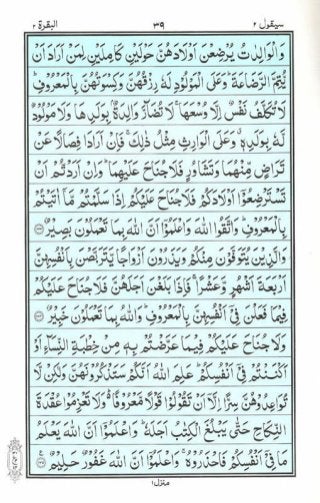 سيقول ٢ ٣٩ البقرة ٢
وَالْوَالِدٰتُ يُرْضِعْنَ اَوْلَادَهُنَّ حَوْلَيْنِ كَامِلَيْنِ لِمَنْ اَرَادَ اَنْ
يُّتِمَّ الرَّضَاعَةَ ؕ وَعَلَى الْمَوْلُوْدِ لَهٗ رِزْقُهُنَّ وَكِسْوَتُهُنَّ بِالْمَعْرُوْفِ ؕ
لَا تُكَلَّفُ نَفْسٌ اِلَّا وُسْعَهَا ۚ لَا تُضَآرَّ وَالِدَةٌۢ بِوَلَدِهَا وَلَا مَوْلُوْدٌ
لَّهٗ بِوَلَدِهٖ ۗ وَعَلَى الْوَارِثِ مِثْلُ ذٰلِكَ ۚ فَاِنْ اَرَادَا فِصَالًا عَنْ
تَرَاضٍ مِّنْهُمَا وَتَشَاوُرٍ فَلَا جُنَاحَ عَلَيْهِمَا ؕ وَاِنْ اَرَدْتُّمْ اَنْ
تَسْتَرْضِعُوْٓا اَوْلَادَكُمْ فَلَا جُنَاحَ عَلَيْكُمْ اِذَا سَلَّمْتُمْ مَّآ اٰتَيْتُمْ
بِالْمَعْرُوْفِ ؕ وَاتَّقُوا اللّٰهَ وَاعْلَمُوْٓا اَنَّ اللّٰهَ بِمَا تَعْمَلُوْنَ بَصِيْرٌ ﴿٢٣٣﴾
وَالَّذِيْنَ يُتَوَفَّوْنَ مِنْكُمْ وَيَذَرُوْنَ اَزْوَاجًا يَّتَرَبَّصْنَ بِاَنْفُسِهِنَّ
اَرْبَعَةَ اَشْهُرٍ وَّعَشْرًا ۚ فَاِذَا بَلَغْنَ اَجَلَهُنَّ فَلَا جُنَاحَ عَلَيْكُمْ
فِيْمَا فَعَلْنَ فِيْٓ اَنْفُسِهِنَّ بِالْمَعْرُوْفِ ؕ وَاللّٰهُ بِمَا تَعْمَلُوْنَ خَبِيْرٌ ﴿٢٣٤﴾
وَلَا جُنَاحَ عَلَيْكُمْ فِيْمَا عَرَّضْتُمْ بِهٖ مِنْ خِطْبَةِ النِّسَآءِ اَوْ
اَكْنَنْتُمْ فِيْٓ اَنْفُسِكُمْ ؕ عَلِمَ اللّٰهُ اَنَّكُمْ سَتَذْكُرُوْنَهُنَّ وَلٰكِنْ لَّا
تُوَاعِدُوْهُنَّ سِرًّا اِلَّآ اَنْ تَقُوْلُوْا قَوْلًا مَّعْرُوْفًا ؕ وَلَا تَعْزِمُوْا عُقْدَةَ
النِّكَاحِ حَتّٰى يَبْلُغَ الْكِتٰبُ اَجَلَهٗ ؕ وَاعْلَمُوْٓا اَنَّ اللّٰهَ يَعْلَمُ
مَا فِيْٓ اَنْفُسِكُمْ فَاحْذَرُوْهُ ۚ وَاعْلَمُوْٓا اَنَّ اللّٰهَ غَفُوْرٌ حَلِيْمٌ ﴿٢٣٥﴾
منزل ١